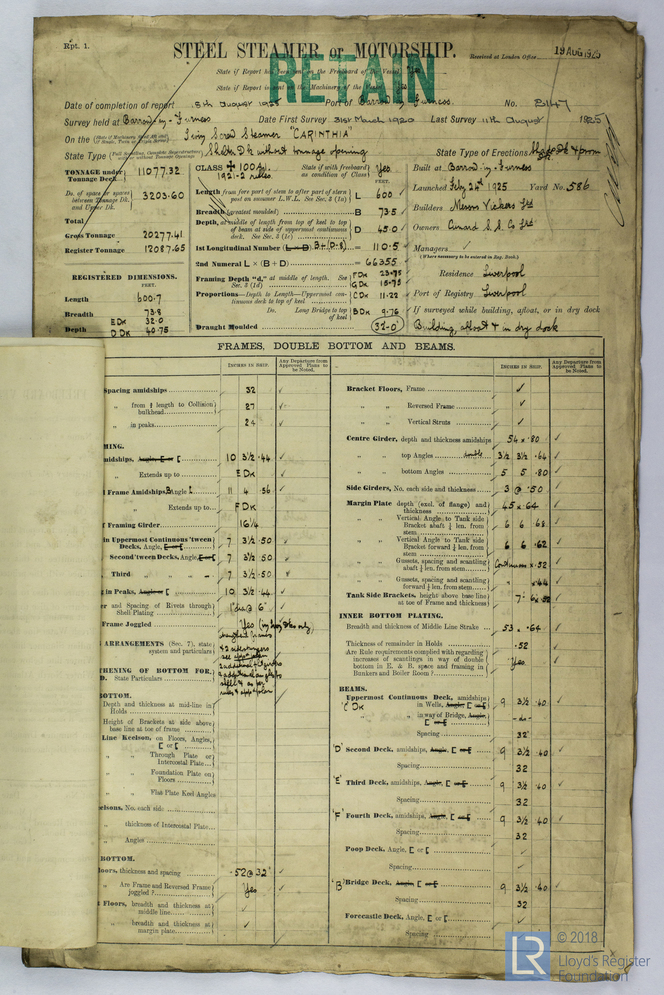 Rpt. 1.
STEEL STEAMER or MOTORSHIP.
Received at London Office 19 AUG 1925
RETAIN
State if Report has been sent on the Freeboard of the Vessel Yes
State if Report is sent on the Machinery of the Vessel
Date of completion of report 18th August 1925 Port of Barrow-in-Furness. No. 2147
Survey held at Barrow-in-Furness Date First Survey 31st March 1920 Last Survey 11th August 1925
On the Twin Screw Steamer "CARINTHIA"
State Type Shelter Dk without tonnage opening State Type of Erections
TONNAGE under Tonnage Deck 11077.32
Do. of space or spaces between Tonnage Dk. and Upper Dk. 3203.60
Total
Gross Tonnage 20277.41
Register Tonnage 12087.65
REGISTERED DIMENSIONS.
FEET.
Length 600.7
Breadth 73.8
E DK 32.0
Depth D DK 40.75
CLASS 100A1.
1921-2 rules
State if with freeboard as condition of Class Yes
FEET.
Length from fore part of stem to after part of stern post on summer L.W.L. See Sec. 3 (1a) L 600
Breadth (greatest moulded) B 73.5
Depth, at middle of length from top of keel to top of beam at side of uppermost continuous deck. See Sec. 3 (1c) D 45.0
1st Longitudinal Number (L × D) B+(D-8) = 110.5
2nd Numeral L × (B + D) = 66355
Framing Depth "d," at middle of length. See Sec. 3 (1d) F DK 23.75
G DK 15.75
Proportions—Depth to Length—Uppermost continuous deck to top of keel C DK 11.22
Do. Long Bridge to top of keel B DK 9.76
Draught Moulded 32-0
Built at Barrow-in-Furness
Launched Feby 24th 1925 Yard No. 586
Builders Messrs Vickers Ltd
Owners Cunard S.S. Co Ltd
Managers
(Where necessary to be entered in Reg. Book.)
Residence Liverpool
Port of Registry Liverpool
If surveyed while building, afloat, or in dry dock
Building, afloat & in dry dock
FRAMES, DOUBLE BOTTOM AND BEAMS.
INCHES IN SHIP.
Any Departure from Approved Plans to be Noted.
Spacing amidships 32 ✓
„ from ⅕ length to Collision bulkhead 27 ✓
„ in peaks 24 ✓
MING.
midships, Angle, [ or [ 10 3½ .44 ✓
„ Extends up to E DK
d Frame Amidships, Angle 11 4 .56 ✓
„ Extends up to F DK
f Framing Girder 16¼
n Uppermost Continuous 'tween Decks, Angle, [ or [ 7 3½ .50 ✓
Second 'tween Decks, Angle, [ or [ 7 3½ .50 ✓
Third „ „ „ 7 3½ .50 ✓
g in Peaks, Angle or [ 10 3½ .44 ✓
er and Spacing of Rivets through Shell Plating
Frame Joggled Yes
ARRANGEMENTS (Sec. 7), state system and particulars
THENING OF BOTTOM FOR. D. State Particulars
BOTTOM.
Depth and thickness at mid-line in Holds
Height of Brackets at side above base line at toe of frame
Line Keelson, on Floors, Angles, [ or [
„ „ Through Plate or Intercostal Plate
„ „ Foundation Plate on Floors
„ „ Flat Plate Keel Angles
elsons, No. each side
„ thickness of Intercostal Plate
„ Angles
BOTTOM.
loors, thickness and spacing .52 @ 32" ✓
„ Are Frame and Reversed Frame joggled? Yes ✓
t Floors, breadth and thickness at middle line ✓
„ breadth and thickness at margin plate ✓
INCHES IN SHIP.
Any Departure from Approved Plans to be Noted.
Bracket Floors, Frame ✓
„ „ Reversed Frame ✓
„ „ Vertical Struts ✓
Centre Girder, depth and thickness amidships 54 × .80 ✓
„ „ top Angles double 3½ 3½ .64 ✓
„ „ bottom Angles 5 5 .80 ✓
Side Girders, No. each side and thickness 3 @ .50 ✓
Margin Plate depth (excl. of flange) and thickness 45 × .64 ✓
„ „ Vertical Angle to Tank side Bracket abaft ¼ len. from stem 6 6 .68 ✓
„ „ Vertical Angle to Tank side Bracket forward ¼ len. from stem 6 6 .62 ✓
„ „ Gussets, spacing and scantling abaft ¼ len. from stem Continuous × .52 ✓
„ „ Gussets, spacing and scantling forward ¼ len. from stem „ × .44 ✓
Tank Side Brackets, height above base line at toe of Frame and thickness
INNER BOTTOM PLATING.
Breadth and thickness of Middle Line Strake 53 × .64 ✓
Thickness of remainder in Holds .52
Are Rule requirements complied with regarding increase of scantlings in way of double bottom in E. & B. space and framing in Bunkers and Boiler Room? Yes. ✓
BEAMS.
Uppermost Continuous Deck, amidships
'C' DK in Wells, Angle, [ or [ 9 3½ .40 ✓
„ in way of Bridge, Angle, [ or [ -do-
Spacing 32"
'D' Second Deck, amidships, Angle, [ or [ 9 3½ .40 ✓
Spacing 32
'E' Third Deck, amidships, Angle, [ or [ 9 3½ .40 ✓
Spacing 32
'F' Fourth Deck, amidships, Angle, [ or [ 9 3½ .40 ✓
Spacing 32
Poop Deck, Angle, [ or [ ✓
Spacing ✓
'B' Bridge Deck, Angle, [ or [ 9 3½ .40 ✓
Spacing 32
Forecastle Deck, Angle, [ or [ ✓
Spacing
LR
© 2018
Lloyd's Register
Foundation